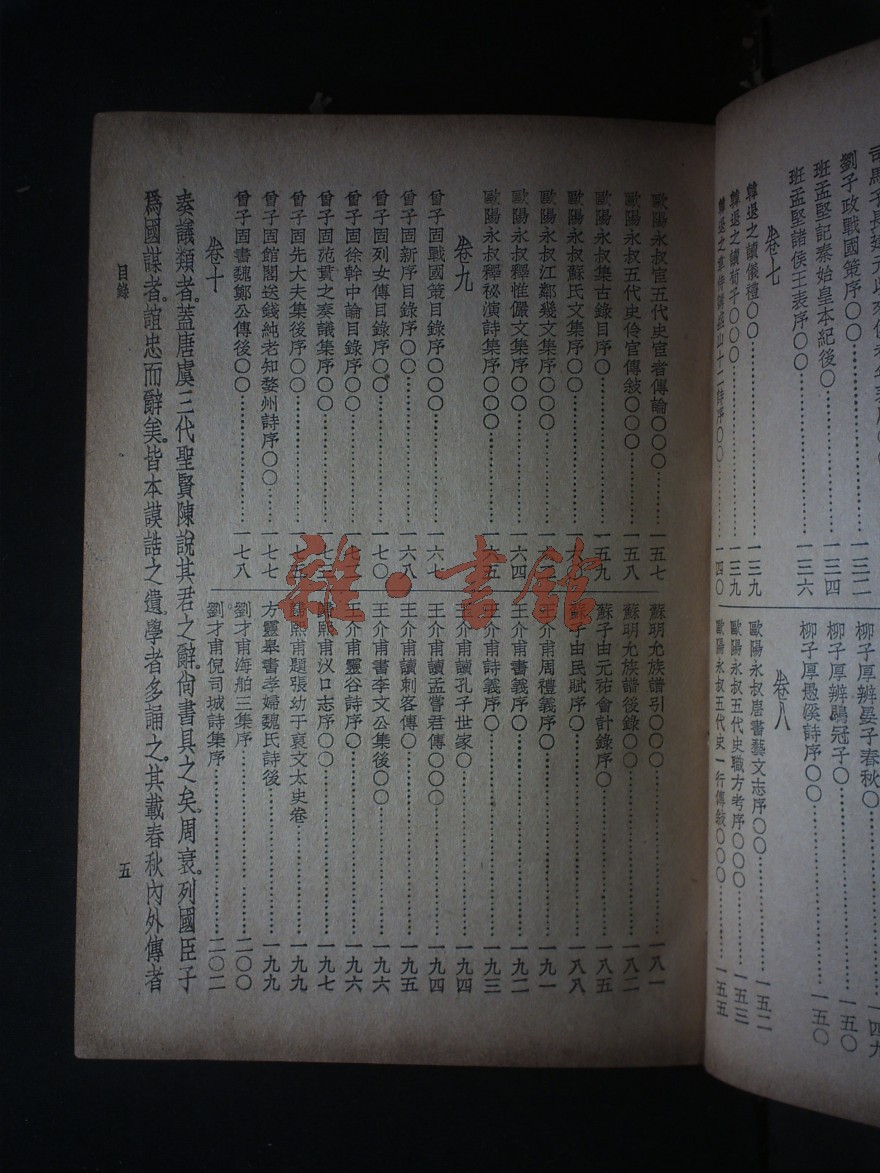 劉子政戰國策序〇〇
班孟堅記秦始皇本紀後〇
一三四
班孟堅諸侯王表序〇〇
一三六
卷七
韓退之讀儀禮〇〇
一三九
韓退之讀荀子〇〇〇
一三九
一四〇
一三二
柳子厚辨晏子春秋〇
一四九
柳子厚辨鶡冠子〇
一五〇
柳子厚愚溪詩序〇〇
一五〇
卷八
歐陽永叔唐書藝文志序〇〇
一五二
歐陽永叔五代史職方考序〇〇〇
一五三
歐陽永叔五代史一行傳敍〇〇〇
一五五
歐陽永叔宦五代史宦者傳論〇〇〇
一五七
歐陽永叔五代史伶官傳敍〇〇〇
一五八
歐陽永叔集古錄目序〇〇
一五九
歐陽永叔蘇氏文集序〇〇
歐陽永叔江鄰幾文集序〇〇
歐陽永叔釋惟儼文集序〇〇
一六四
歐陽永叔釋祕演詩集序〇〇〇
卷九
曾子固戰國策目錄序〇〇〇
一六七
曾子固新序目錄序〇〇
一六八
曾子固列女傳目錄序〇〇
一七〇
曾子固徐幹中論目錄序〇〇
曾子固范貫之奏議集序〇〇
曾子固先大夫集後序〇〇
一七五
曾子固館閣送錢純老知婺州詩序〇〇
一七七
曾子固書魏鄭公傳後〇〇
一七八
蘇明允族譜引〇〇〇
一八一
蘇明允族譜後錄〇〇
一八二
蘇子由元祐會計錄序〇
一八五
蘇子由民賦序〇〇
一八八
王介甫周禮義序〇
一九一
王介甫書義序〇
一九二
王介甫詩義序〇
一九三
王介甫讀孔子世家〇
一九四
王介甫讀孟嘗君傳〇〇〇
一九四
王介甫讀刺客傳〇
一九五
王介甫書李文公集後〇〇
一九六
王介甫靈谷詩序〇
一九六
歸熙甫汊口志序〇〇
一九七
歸熙甫題張幼于裒文太史卷
一九九
方靈皋書孝婦魏氏詩後
一九九
劉才甫海舶三集序
二〇〇
劉才甫倪司城詩集序
二〇二
卷十
奏議類者。蓋唐虞三代聖賢陳說其君之辭。尙書具之矣。周衰。列國臣子
爲國謀者。誼忠而辭美。皆本謨誥之遺。學者多誦之。其載春秋內外傳者
目錄
五
雜·書館